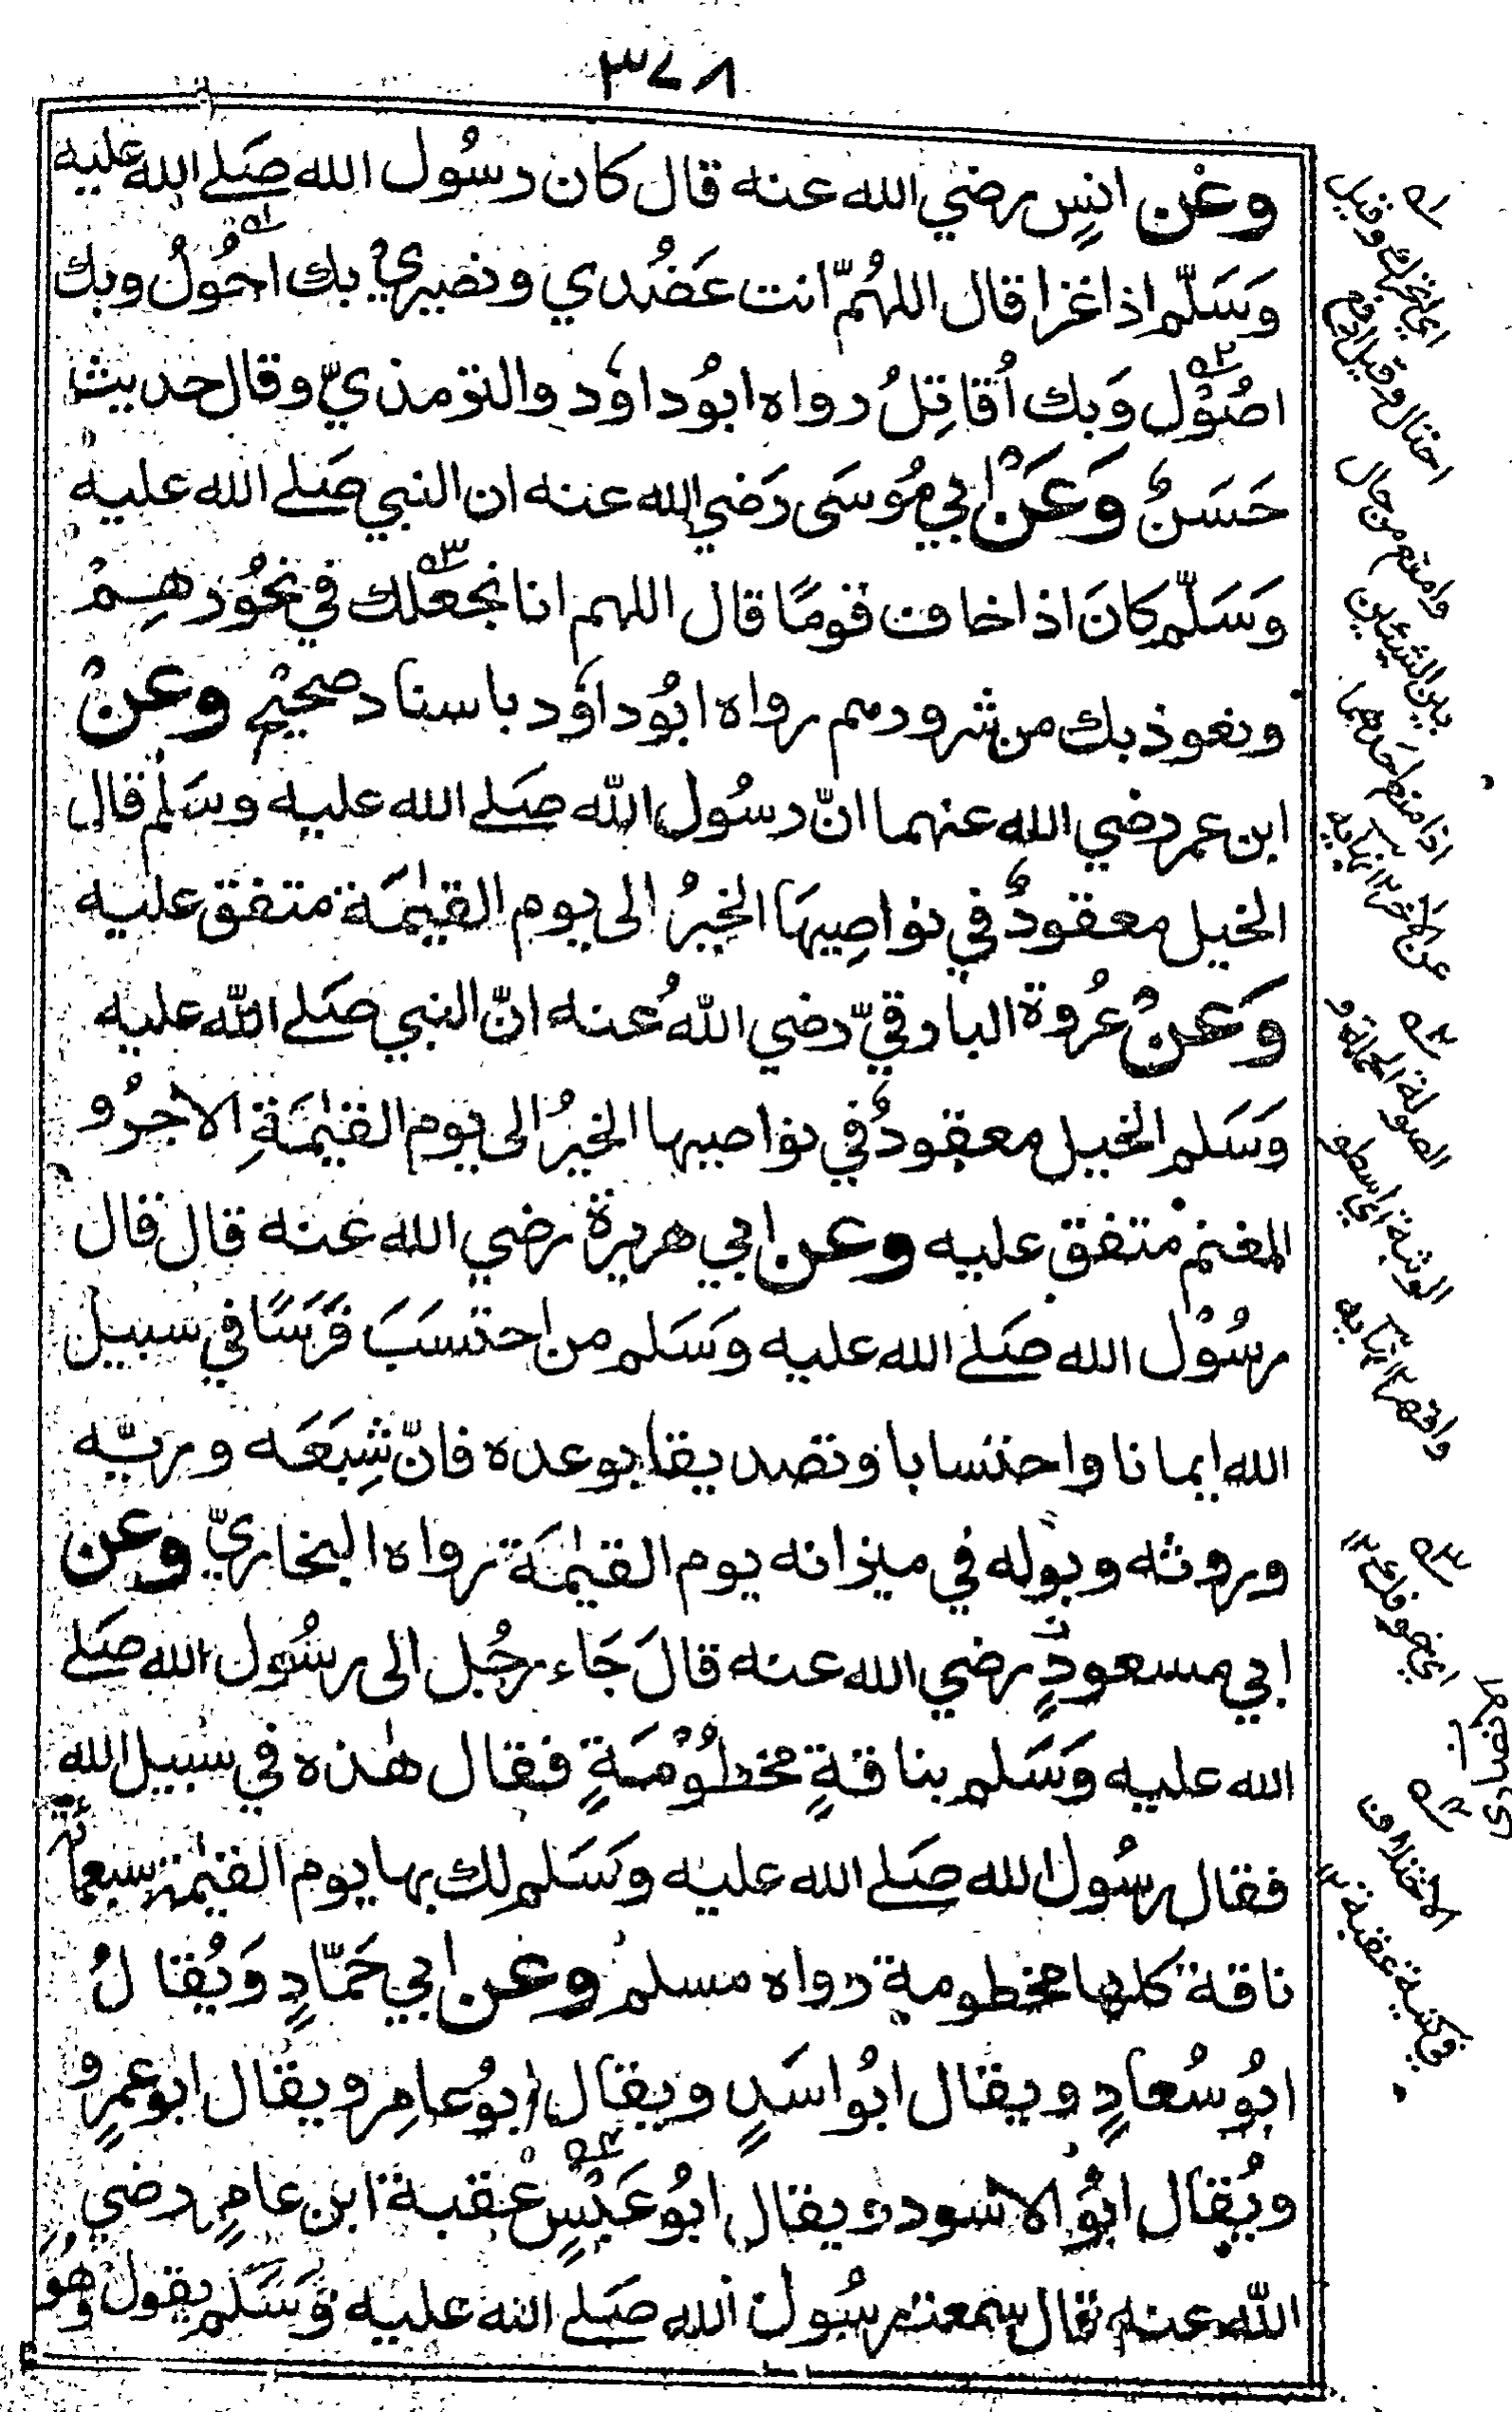 ٣٧٨
وعن انسٍ رضي الله عنه قال كان رسُول الله صَلے الله عليه
وَسَلّم اذا غزا قال اللهُمّ انت عَضُدي ونصيري بك احُولُ وبك
اصُوْل وَبك اُقاتِلُ رواه ابُو داؤد والترمذيّ وقال حديث
حَسَنٌ وَعَنْ ابي مُوسَى رَضي الله عنه ان النبي صَلے الله عليه
وَسَلّم كانَ اذا خاف قومًا قال اللهم انا نجعلك في نحُورهِمْ
ونعوذ بك من شرورهم رواه ابُو داؤد باسناد صحيْح وعنْ
ابن عمر رضي الله عنهما انّ رسُول الله صَلے الله عليه وسَلم قال
الخيل معقودٌ في نواصِيهَا الخيرُ الى يوم القيٰمَة متفق عليه
وَعَنْ عُروة البارقيّ رضي اللهُ عنه انّ النبي صَلے الله عليه
وَسَلم الخيل معقودٌ في نواصيها الخيرُ الى يوم القيٰمَةِ الاجرُ و
المغنم متفق عليه وعن ابي هريرة رضي الله عنه قال قال
رسُوْل الله صَلے الله عليه وَسَلم من احتسَبَ فَرَسًا في سبيل
الله ايمانا واحتسابا وتصديقا بوعده فانّ شِبَعَه وريّه
وروثه وبوله في ميزانه يوم القيٰمَة رواه البخاريّ وعن
ابي مسعودٍ رضي الله عنه قالَ جَاء رجُل الى رسُول الله صَلے
الله عليه وَسَلم بناقةٍ مخطُوْمَةٍ فقال هٰذه في سبيل الله
فقال رسُول الله صَلے الله عليه وَسَلم لك بها يوم القيٰمة سبعمائة
ناقة كلها مخطومة رواه مسلم وعن ابي حَمّادٍ وَيُقالُ
ابُو سُعادٍ ويقال ابُو اسَدٍ ويقال ابُو عامِر ويقال ابو عمرٍو
ويُقال ابُو الاسود ويقال ابُو عَبْسٍ عُقبة ابن عامِرٍ رضي
الله عنه قال سمعت رسُول الله صَلے الله عليه وَسَلم يقول وهُو
ا؎
اي اتحرك وقيل
احتال وقيل ادفع
وامنع من حال
بين الشيئين
اذا منع احدهما
عن الاخر ١٢ نهايه
٢؎
الصولة الحملة و
الوثبة اي اسطو
واقهر ١٢ نهايه
٣؎
٤؎
الاختلاف
في كنية عقبة ١٢